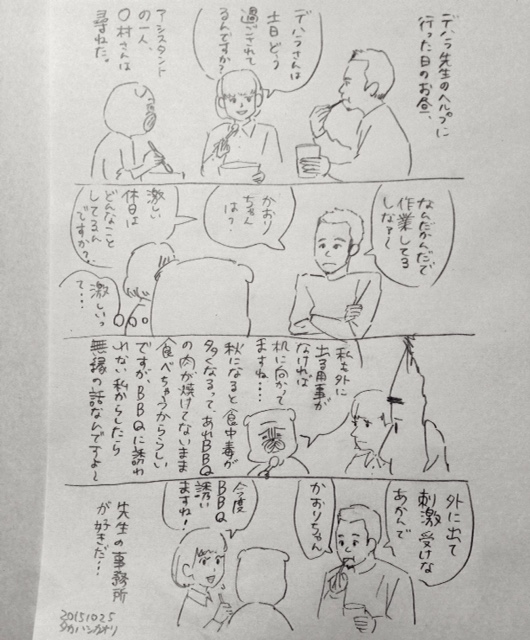 デハラ先生のヘルプに
行った日のお昼、
デハラさんは
土日どう
過ごされて
るんですか?
アシスタント
の一人、
O村さんは
尋ねた。
なんだかんだで
作業してる
しな〜
かおり
ちゃん
は?
激しい
休日は
どんなこと
してるん
ですか?
激しいっ
て・・・
私も外に
出る用事が
なければ
机に向かって
ますね・・・
秋になると食中毒が
多くなるって、あれBBQ
の肉が焼けてないまま
食べちゃうかららしい
ですが、BBQに誘わ
れない私からしたら
無縁の話なんですよ〜
外に出て
刺激受けな
あかんで
かおりちゃん
今度
BBQ
誘い
ますね!
先生の事務所
が好きだ・・・
20151025
タカハシカオリ